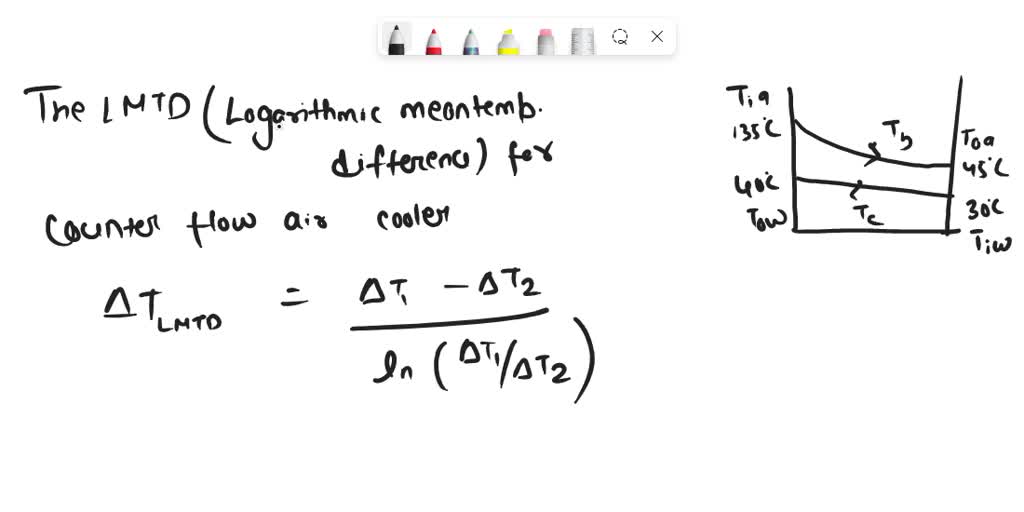 The LMTD (Logarithmic meantemb.
difference) for
counter flow air cooler
ΔT_LMTD = ΔT₁ - ΔT₂
ln (ΔT₁/ΔT₂)
Tia
135°C
Th
Toa
45°C
40°C
Tow
Tc
30°C
Tiw